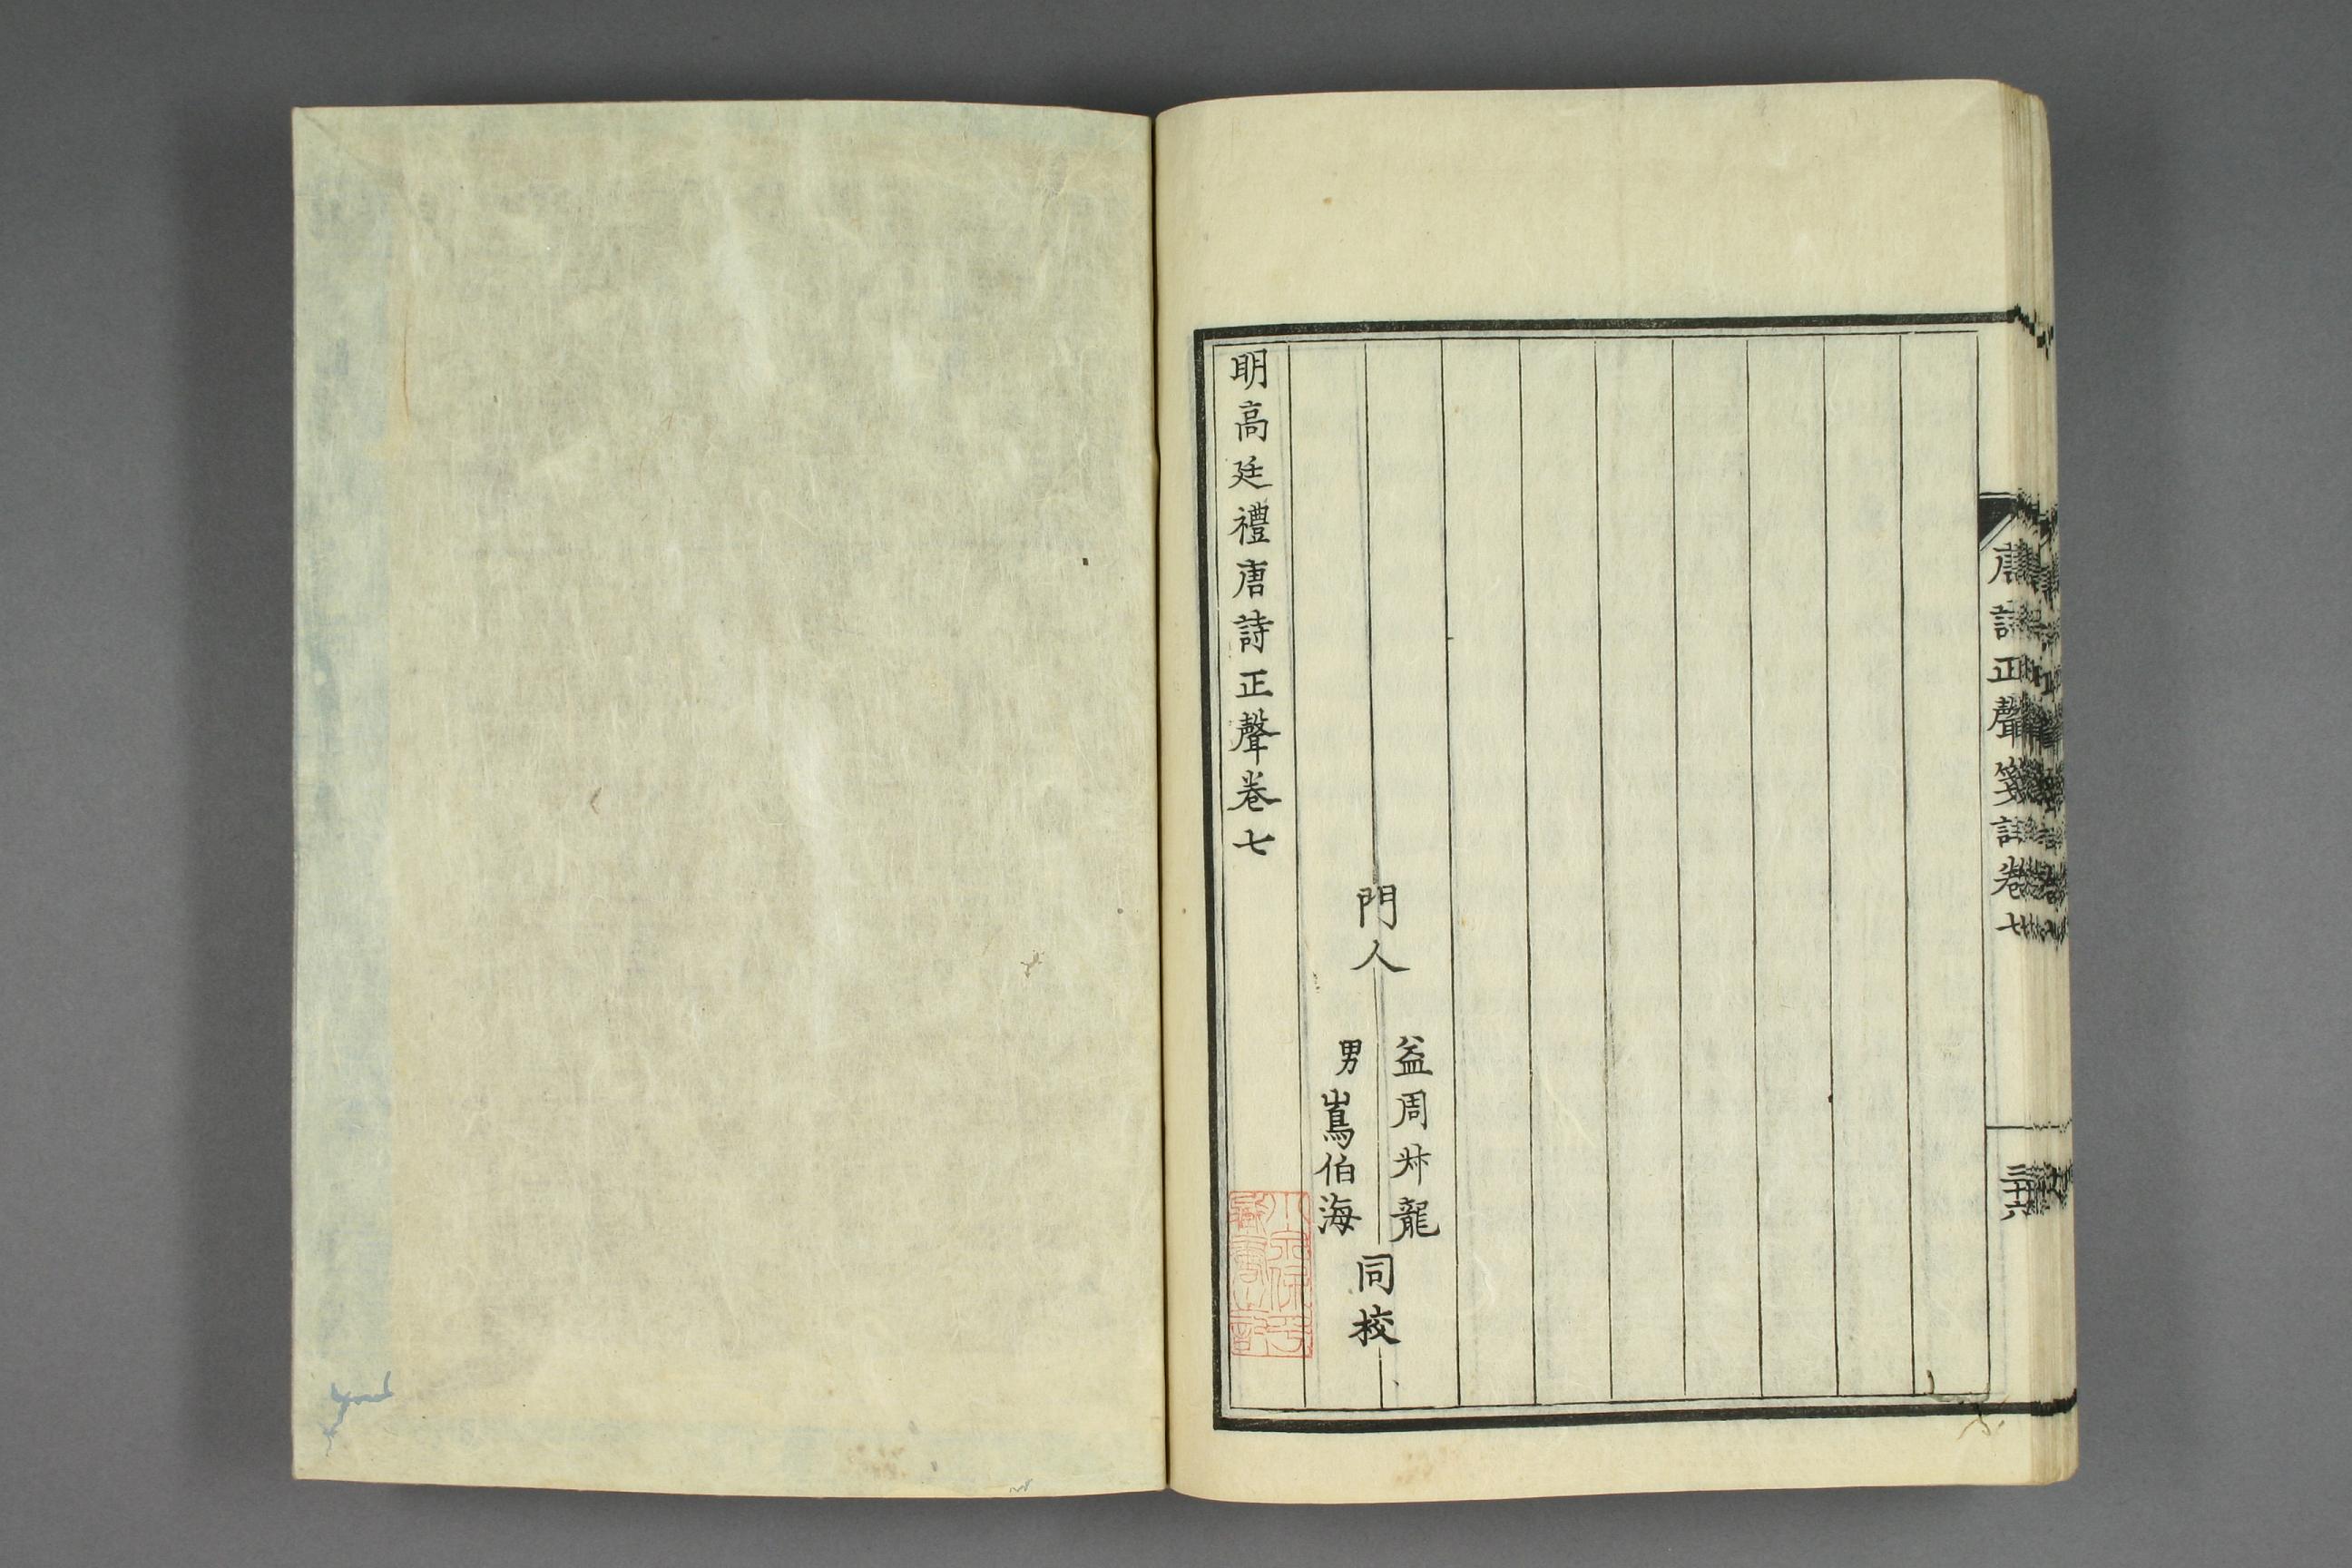 唐詩正聲箋註卷七
三十六
門人
益周叔龍
男
嶌伯海
同校
明高廷禮唐詩正聲卷七